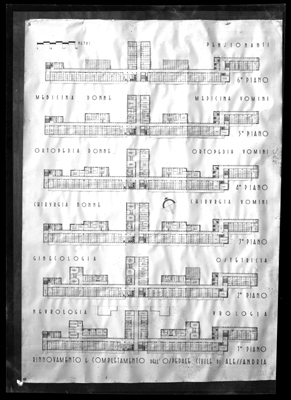 METRI
PENSIONANTI
6° PIANO
MEDICINA DONNE MEDICINA UOMINI
5° PIANO
ORTOPEDIA DONNE ORTOPEDIA UOMINI
4° PIANO
CHIRURGIA DONNE CHIRURGIA UOMINI
3° PIANO
GINECOLOGIA OSTETRICIA
2° PIANO
NEUROLOGIA UROLOGIA
1° PIANO
RINNOVAMENTO E COMPLETAMENTO DELL'OSPEDALE CIVILE DI ALESSANDRIA